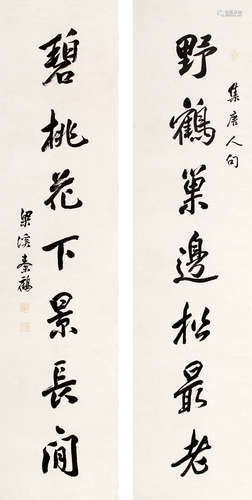 集唐人句
野鶴巢邊松最老
碧桃花下景長閒
梁溪秦鶴